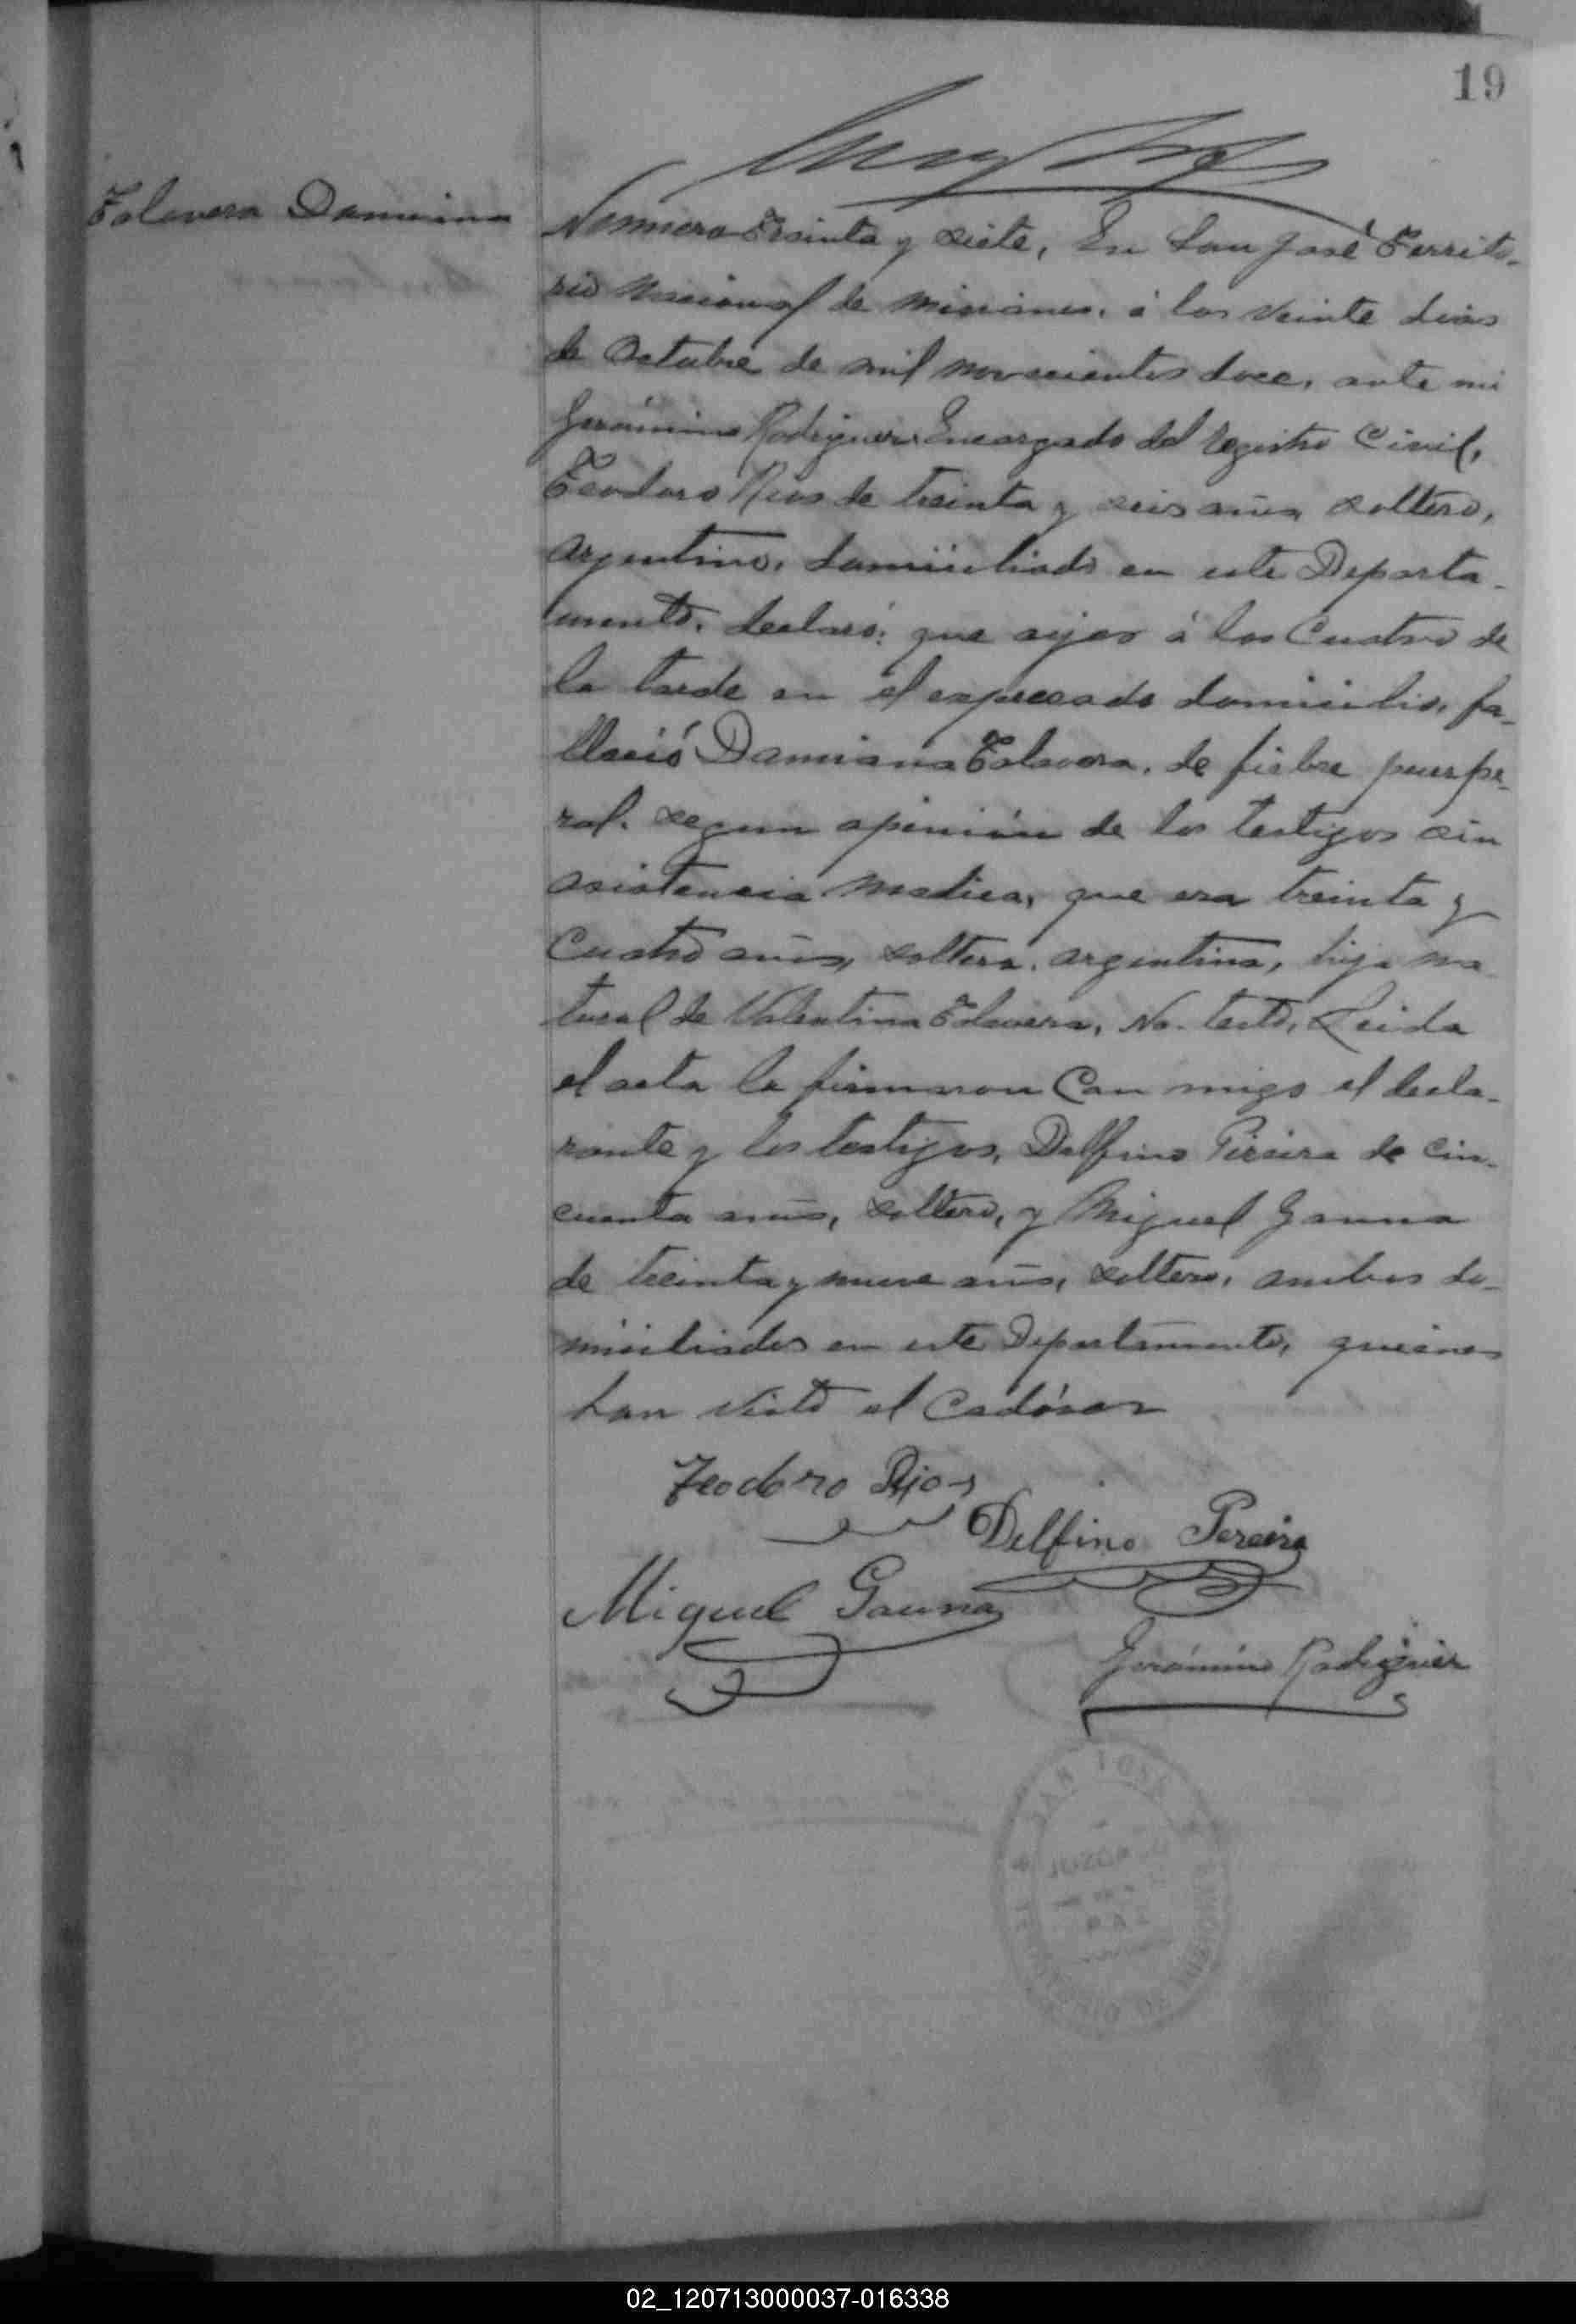 19
Talavera Damiana
Numero Treinta y siete, En San José Territo-
rio Nacional de Misiones, á los veinte dias
de Octubre de mil novecientos doce, ante mi
Gerónimo Rodriguez Encargado del Registro Civil,
Teodoro Rios de treinta y seis años soltero,
argentino, domiciliado en este Departa-
mento, declaró: que ayer á las Cuatro de
la tarde en el expresado domicilio, fa-
lleció Damiana Talavera, de fiebre puerpe-
ral. segun opinión de los testigos sin
asistencia medica, que era treinta y
Cuatro años, soltera, argentina, hija na
tural de Valentina Talavera, No. testó, Leida
el acta la firmaron Con migo el decla-
rante y los testigos, Delfino Pereira de cin-
cuenta años, soltero, y Miguel Gauna
de treinta y nueve años, soltero, ambos do-
miciliados en este Departamento, quienes
han visto el Cadáver
Teodoro Rios
Delfino Pereira
Miguel Gauna
Gerónimo Rodriguez
SAN JOSÉ
JUZGADO
PAZ
02_120713000037-016338